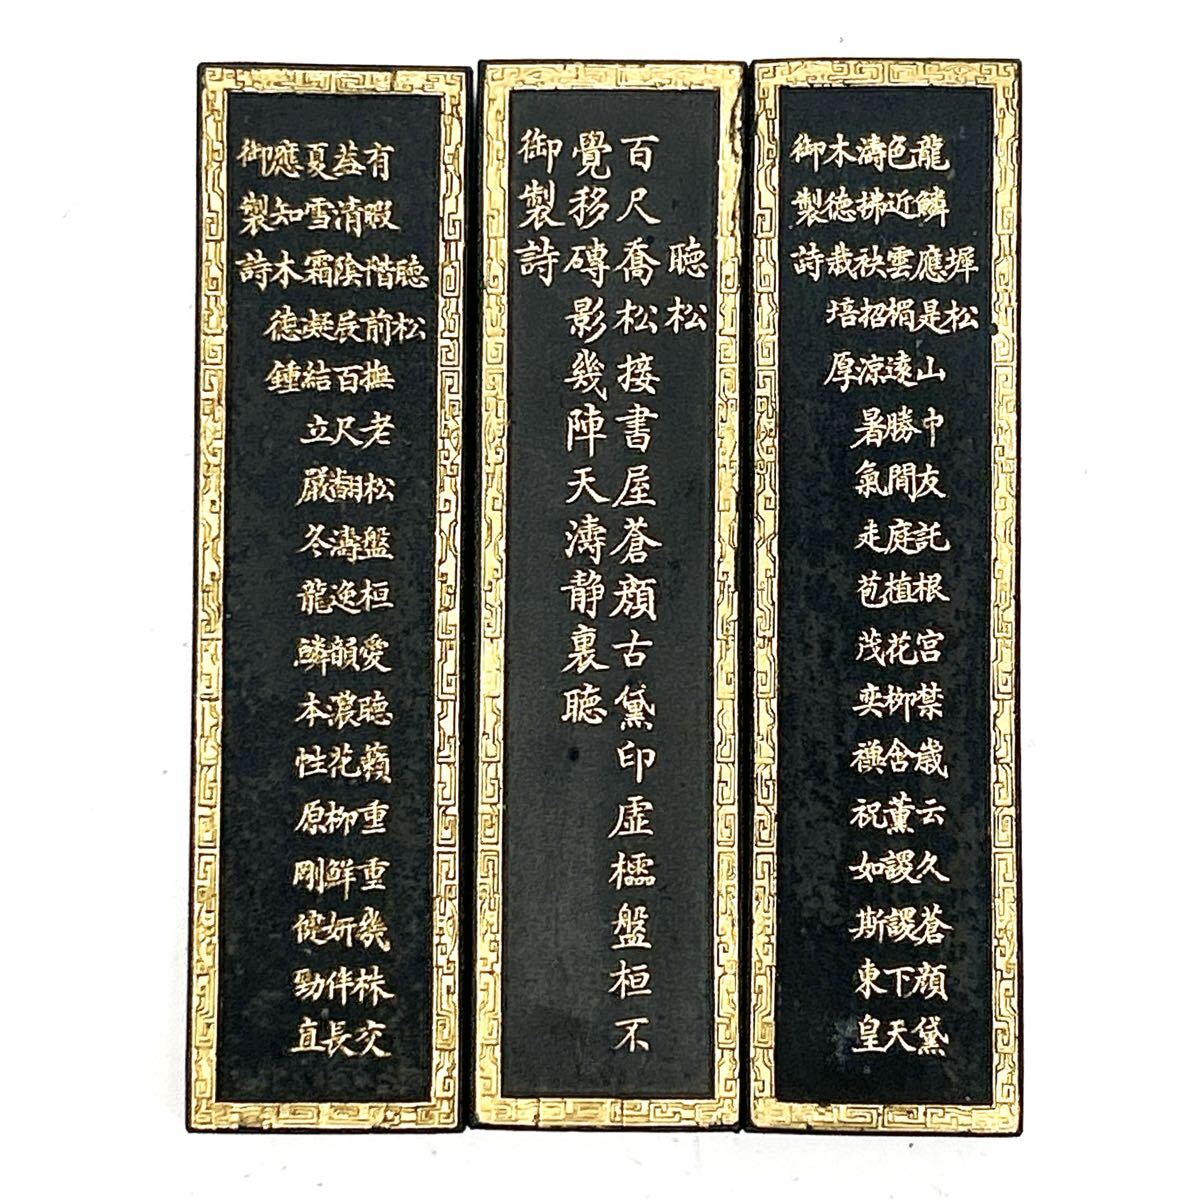 墀松
龍鱗應是山中友託根宮禁歲云久蒼顏黛
色近雲楣遠勝閒庭植花柳含薰謖謖下天
濤拂袂招涼暑氣走苞茂奕禩祝如斯東皇
木德栽培厚
御製詩
聽松
百尺喬松接書屋蒼顏古黛印虛櫺盤桓不
覺移磚影幾陣天濤静裏聽
御製詩
聽松
有暇階前撫老松盤桓愛聽籟重重幾株交
葢清陰展百尺翻濤逸韻濃花柳鮮妍伴長
夏雪霜凝結立嚴冬龍鱗本性原剛健勁直
應知木德鍾
御製詩